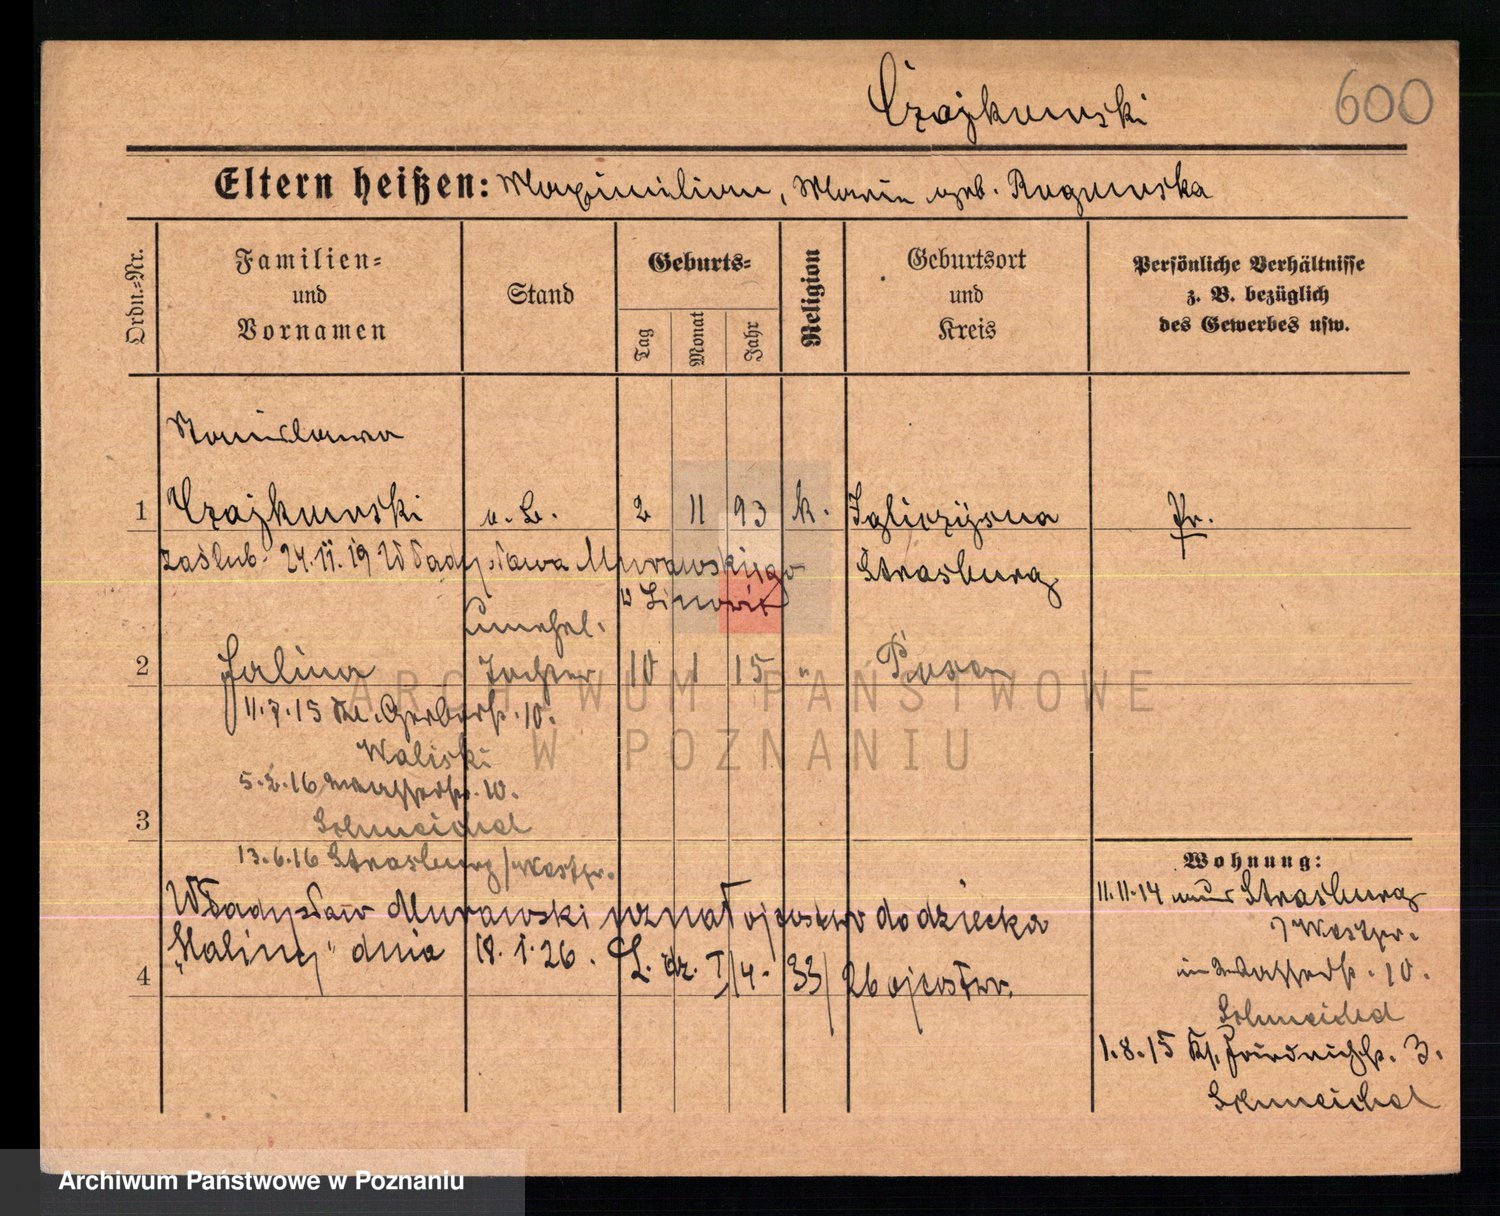 Czajkowski
600
Eltern heißen: Maximilian, Marie geb. Rogowska
Ordn.-Nr.
Familien-
und
Vornamen
Stand
Geburts-
Tag
Monat
Jahr
Religion
Geburtsort
und
Kreis
Persönliche Verhältnisse
z. B. bezüglich
des Gewerbes usw.
Stanislawa
1 Czajkowski o. B. 2 11 93 k. Igliczyzna Pr.
zaślub. 24.11.19 Władysława Murawskiego
Strasburg
w Linowie
unehel.
2 Halina Tochter 10 1 15 " Posen
11.7.15 Kl. Gerberst. 10.
Waliski
5.2.16 Wasserstr. 10.
3 Schmeichel
13.6.16 Strasburg/Westpr.
Wohnung:
11.11.14 Strasburg
Westpr.
Władysław Murawski uznał ojcostwo do dziecka
4 „Haliny" dnia 18.1.26. L. dz. I/4. 33/26 ojcostw.
Wasserstr. 10.
Schmeichel
1.8.15 Friedrichstr. 3.
Schmeichel
ARCHIWUM PAŃSTWOWE
W POZNANIU
Archiwum Państwowe w Poznaniu